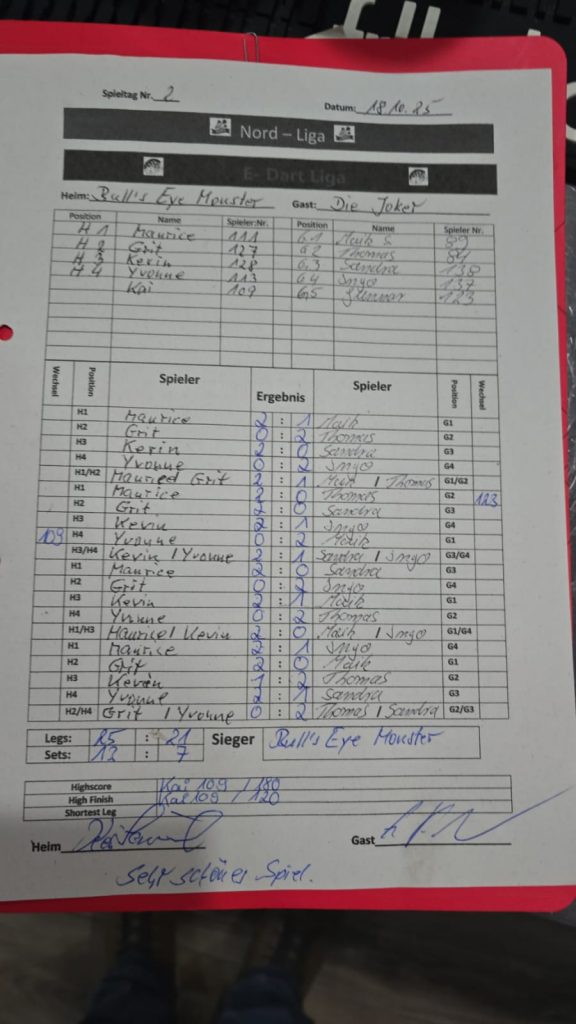 Spieltag Nr. 2 Datum: 18.10.25
Nord – Liga
E- Dart Liga
Heim: Bull's Eye Monster Gast: Die Joker
Position Name Spieler:Nr. Position Name Spieler Nr.
H 1 Maurice 111 G1 Maik S. 89
H 2 Grit 127 G2 Thomas 84
H 3 Kevin 128 G3 Sandra 138
H 4 Yvonne 113 G4 Ingo 137
Kai 109 G5 123
Wechsel Position Spieler Ergebnis Spieler Position Wechsel
H1 Maurice 2 : 1 Maik G1
H2 Grit 0 : 2 Thomas G2
H3 Kevin 2 : 0 Sandra G3
H4 Yvonne 0 : 2 Ingo G4
H1/H2 Maurice Grit 2 : 1 Maik / Thomas G1/G2
H1 Maurice 2 : 0 Thomas G2 123
H2 Grit 2 : 0 Sandra G3
H3 Kevin 2 : 1 Ingo G4
109 H4 Yvonne 0 : 2 Maik G1
H3/H4 Kevin / Yvonne 2 : 1 Sandra / Ingo G3/G4
H1 Maurice 2 : 0 Sandra G3
H2 Grit 0 : 2 Ingo G4
H3 Kevin 2 : 1 Maik G1
H4 Yvonne 0 : 2 Thomas G2
H1/H3 Maurice / Kevin 2 : 0 Maik / Ingo G1/G4
H1 Maurice 2 : 1 Ingo G4
H2 Grit 2 : 0 Maik G1
H3 Kevin 1 : 2 Thomas G2
H4 Yvonne 2 : 1 Sandra G3
H2/H4 Grit / Yvonne 0 : 2 Thomas / Sandra G2/G3
Legs: 25 : 21 Sieger Bull's Eye Monster
Sets: : 7
Highscore Kai 109 / 180
High Finish Kai 109 / 120
Shortest Leg
Heim Gast
Sehr schönes Spiel.